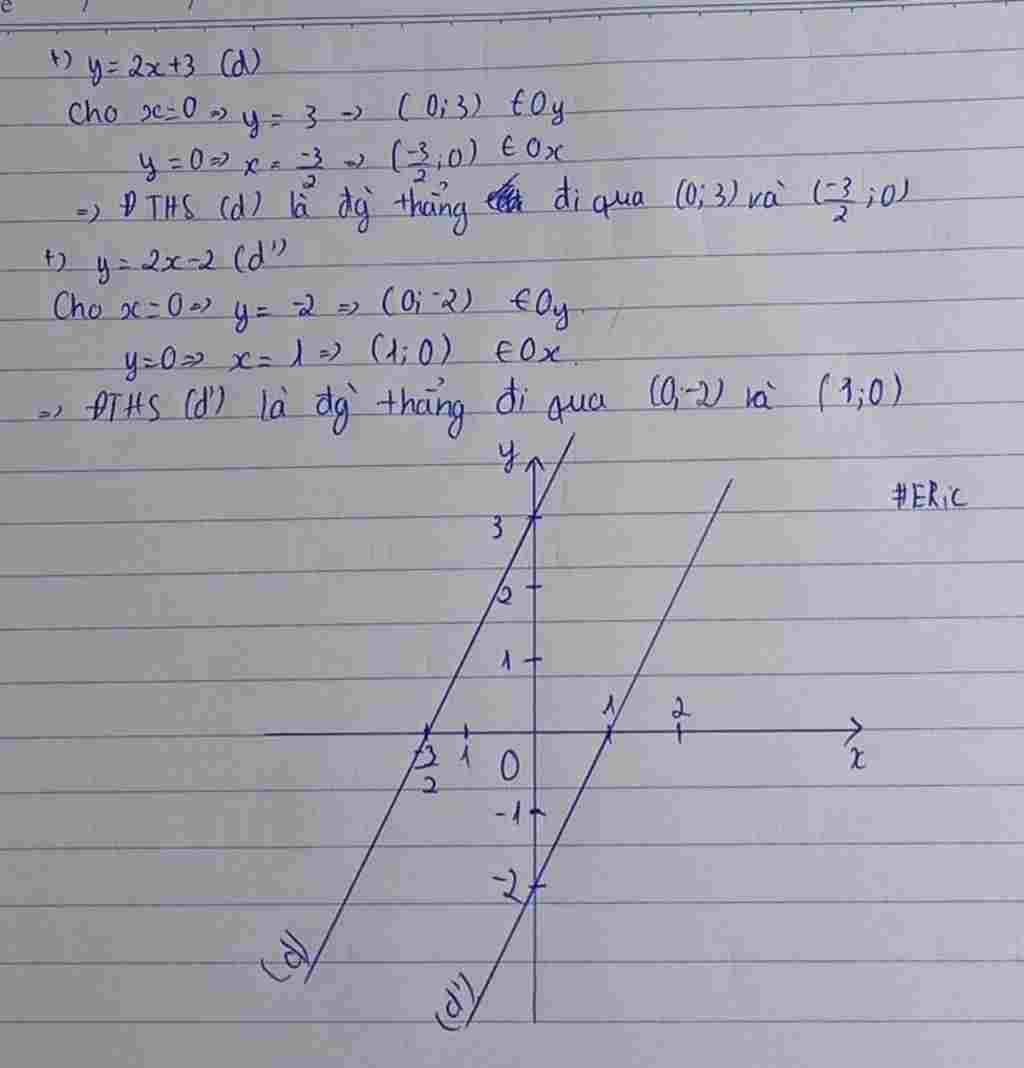 +) y = 2x+3 (d)
Cho x=0 => y = 3 => (0;3) ∈ Oy
y = 0 => x = -3/2 => (-3/2;0) ∈ Ox
=> ĐTHS (d) là đg̀ thẳng đi qua (0;3) và (-3/2;0)
+) y = 2x-2 (d')
Cho x=0 => y = -2 => (0;-2) ∈ Oy
y=0 => x = 1 => (1;0) ∈ Ox
=> ĐTHS (d') là đg̀ thẳng đi qua (0;-2) và (1;0)
y
#ERiC
3
2
1
1 2
-3/2 1 0 x
-1
-2
(d)
(d')